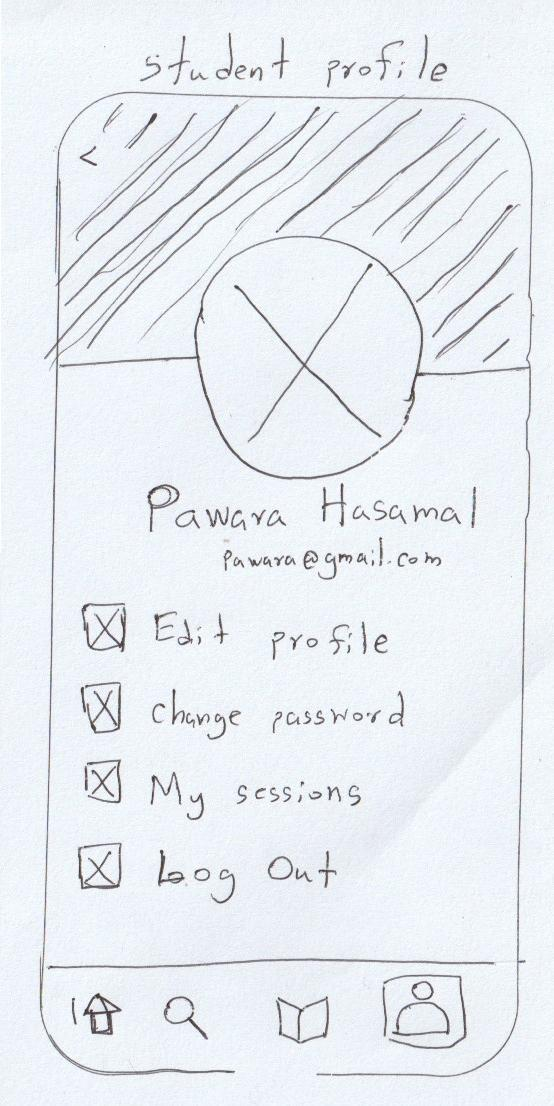 student profile
<
Pawara Hasamal
pawara@gmail.com
Edit profile
change password
My sessions
Log Out